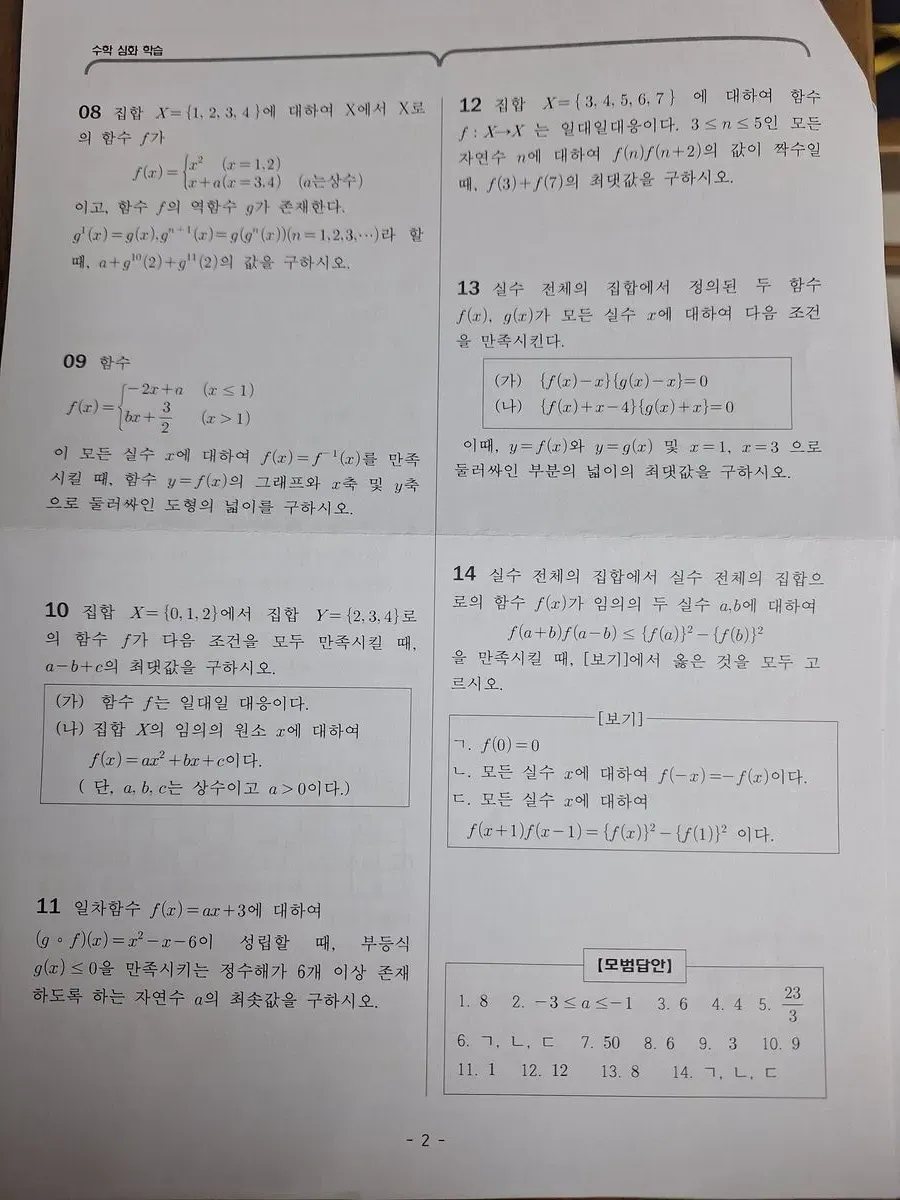 수학 심화 학습
08 집합 X={1, 2, 3, 4}에 대하여 X에서 X로
의 함수 f가
f(x)={x² (x=1,2)
x+a(x=3,4) (a는상수)
이고, 함수 f의 역함수 g가 존재한다.
g¹(x)=g(x), gⁿ⁺¹(x)=g(gⁿ(x))(n=1,2,3,⋯)라 할
때, a+g¹⁰(2)+g¹¹(2)의 값을 구하시오.
09 함수
f(x)={−2x+a (x≤1)
bx+3/2 (x>1)
이 모든 실수 x에 대하여 f(x)=f⁻¹(x)를 만족
시킬 때, 함수 y=f(x)의 그래프와 x축 및 y축
으로 둘러싸인 도형의 넓이를 구하시오.
10 집합 X={0,1,2}에서 집합 Y={2,3,4}로
의 함수 f가 다음 조건을 모두 만족시킬 때,
a−b+c의 최댓값을 구하시오.
(가) 함수 f는 일대일 대응이다.
(나) 집합 X의 임의의 원소 x에 대하여
f(x)=ax²+bx+c이다.
( 단, a, b, c는 상수이고 a>0이다.)
11 일차함수 f(x)=ax+3에 대하여
(g∘f)(x)=x²−x−6이 성립할 때, 부등식
g(x)≤0을 만족시키는 정수해가 6개 이상 존재
하도록 하는 자연수 a의 최솟값을 구하시오.
12 집합 X={3, 4, 5, 6, 7} 에 대하여 함수
f : X→X 는 일대일대응이다. 3≤n≤5인 모든
자연수 n에 대하여 f(n)f(n+2)의 값이 짝수일
때, f(3)+f(7)의 최댓값을 구하시오.
13 실수 전체의 집합에서 정의된 두 함수
f(x), g(x)가 모든 실수 x에 대하여 다음 조건
을 만족시킨다.
(가) {f(x)−x}{g(x)−x}=0
(나) {f(x)+x−4}{g(x)+x}=0
이때, y=f(x)와 y=g(x) 및 x=1, x=3 으로
둘러싸인 부분의 넓이의 최댓값을 구하시오.
14 실수 전체의 집합에서 실수 전체의 집합으
로의 함수 f(x)가 임의의 두 실수 a,b에 대하여
f(a+b)f(a−b)≤{f(a)}²−{f(b)}²
을 만족시킬 때, [보기]에서 옳은 것을 모두 고
르시오.
[보기]
ㄱ. f(0)=0
ㄴ. 모든 실수 x에 대하여 f(−x)=−f(x)이다.
ㄷ. 모든 실수 x에 대하여
f(x+1)f(x−1)={f(x)}²−{f(1)}² 이다.
[모범답안]
1. 8 2. −3≤a≤−1 3. 6 4. 4 5. 23/3
6. ㄱ, ㄴ, ㄷ 7. 50 8. 6 9. 3 10. 9
11. 1 12. 12 13. 8 14. ㄱ, ㄴ, ㄷ
- 2 -